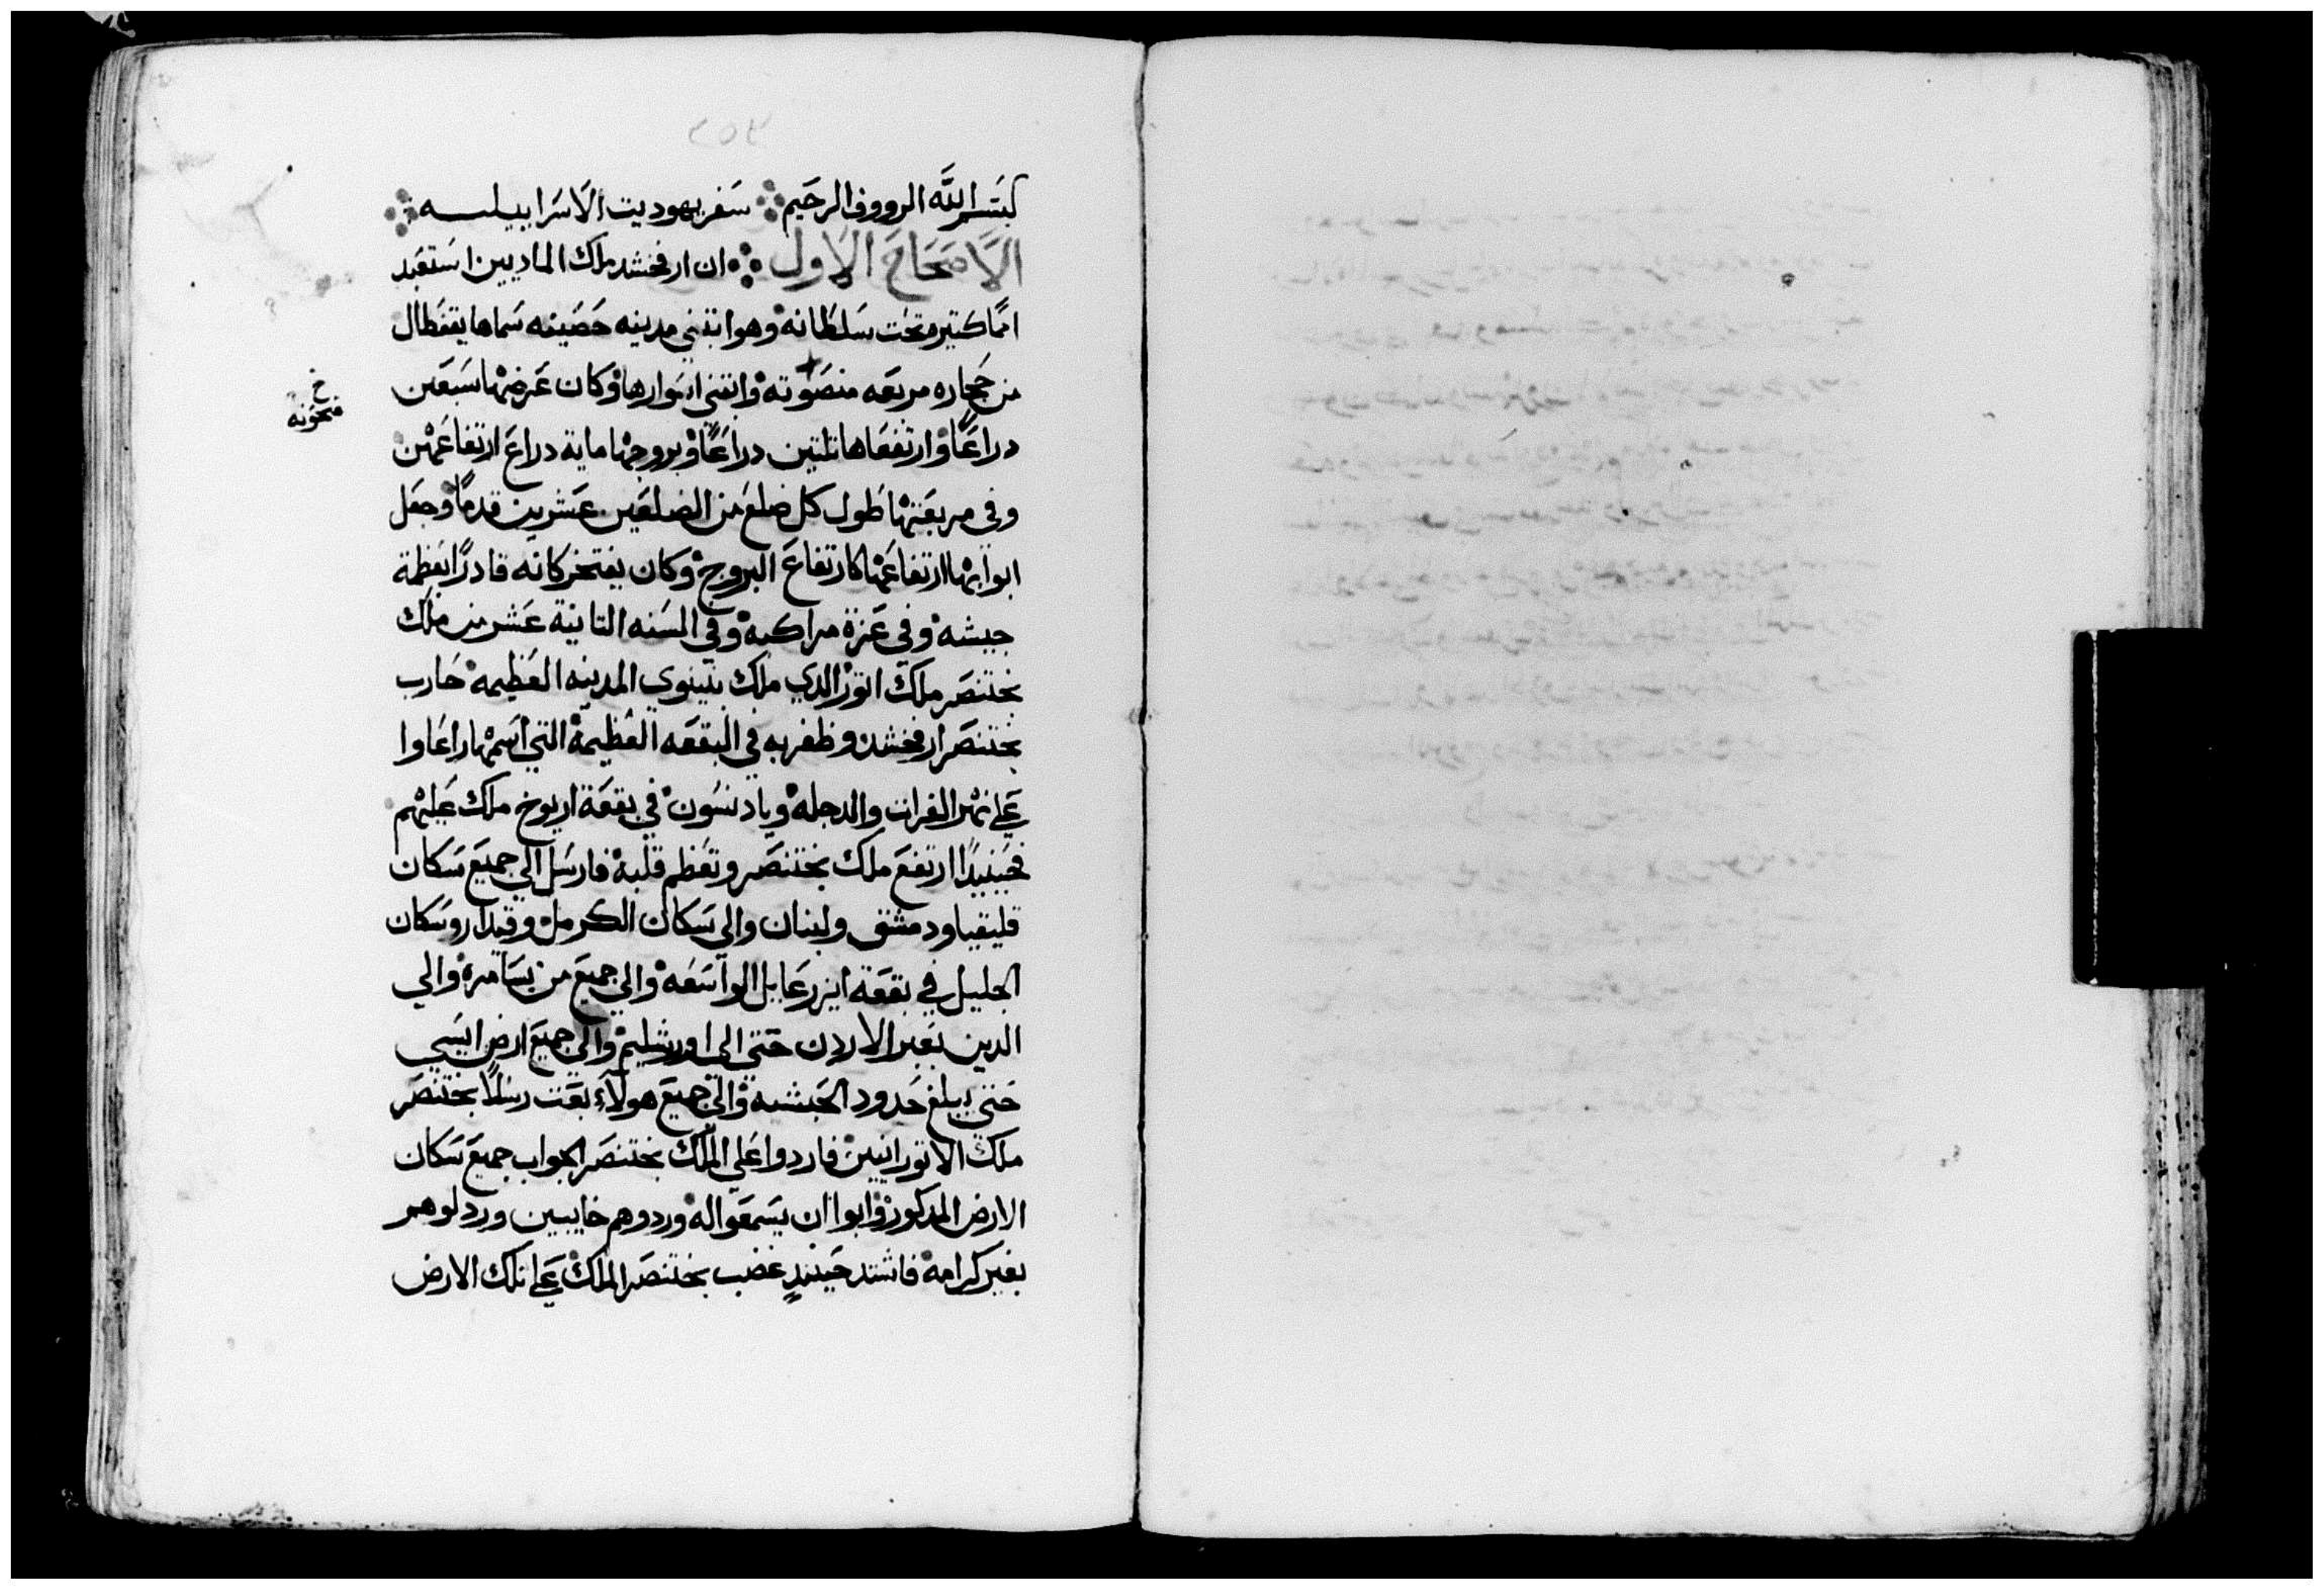 بسم الله الرووف الرحيم سفر يهوديت الاسراييليه
الاصحاح الاول ان ارفخشد ملك الماديين استعبد
امما كتيره تحت سلطانه وهو ابتني مدينه حصينه سماها يقفطال
من حجاره مربعه منصوته وابتني اسوارها وكان عرضها سبعين
خ
منحوته
دراعًا وارتفعاها تلتين دراعًا وبروجها ماية دراع ارتفاعهن
وفي مربعتها طول كل ضلع من الضلعين عشرين قدمًا وجعل
ابوابها ارتفاعها كارتفاع البروج وكان يفتخر كانه قادرًا بعظمة
جيشه وفي عزة مراكبه وفي السنه التانية عشر من ملك
بختنصر ملك اتور الدي ملك بنينوي المدينه العظيمه حارب
بختنصر ارفخشد وظفر به في البقعه العظيمة التي اسمها راعاوا
علي نهر الفرات والدجله ويادنسون في بقعة اريوخ ملك عليهم
فحينيدًا ارتفع ملك بختنصر وتعظم قلبه فارسل الي جميع سكان
قليقيا ودمشق ولبنان والي سكان الكرمل وقيدار وسكان
الجليل في بقعة ايزرعايل الواسعه والي جميع من بسامره والي
الدين بعبر الاردن حتي الي اورشليم والي جميع ارض ايسي
حتي يبلغ حدود الحبشه والي جميع هولاء بعت رسلًا بختنصر
ملك الاتورانيين فاردوا علي الملك بختنصر الجواب جميع سكان
الارض المدكور وابوا ان يسمعوا له وردوهم خايبين وردلوهم
بغير كرامه فاشتد حينيدٍ غضب بختنصر الملك علي تلك الارض